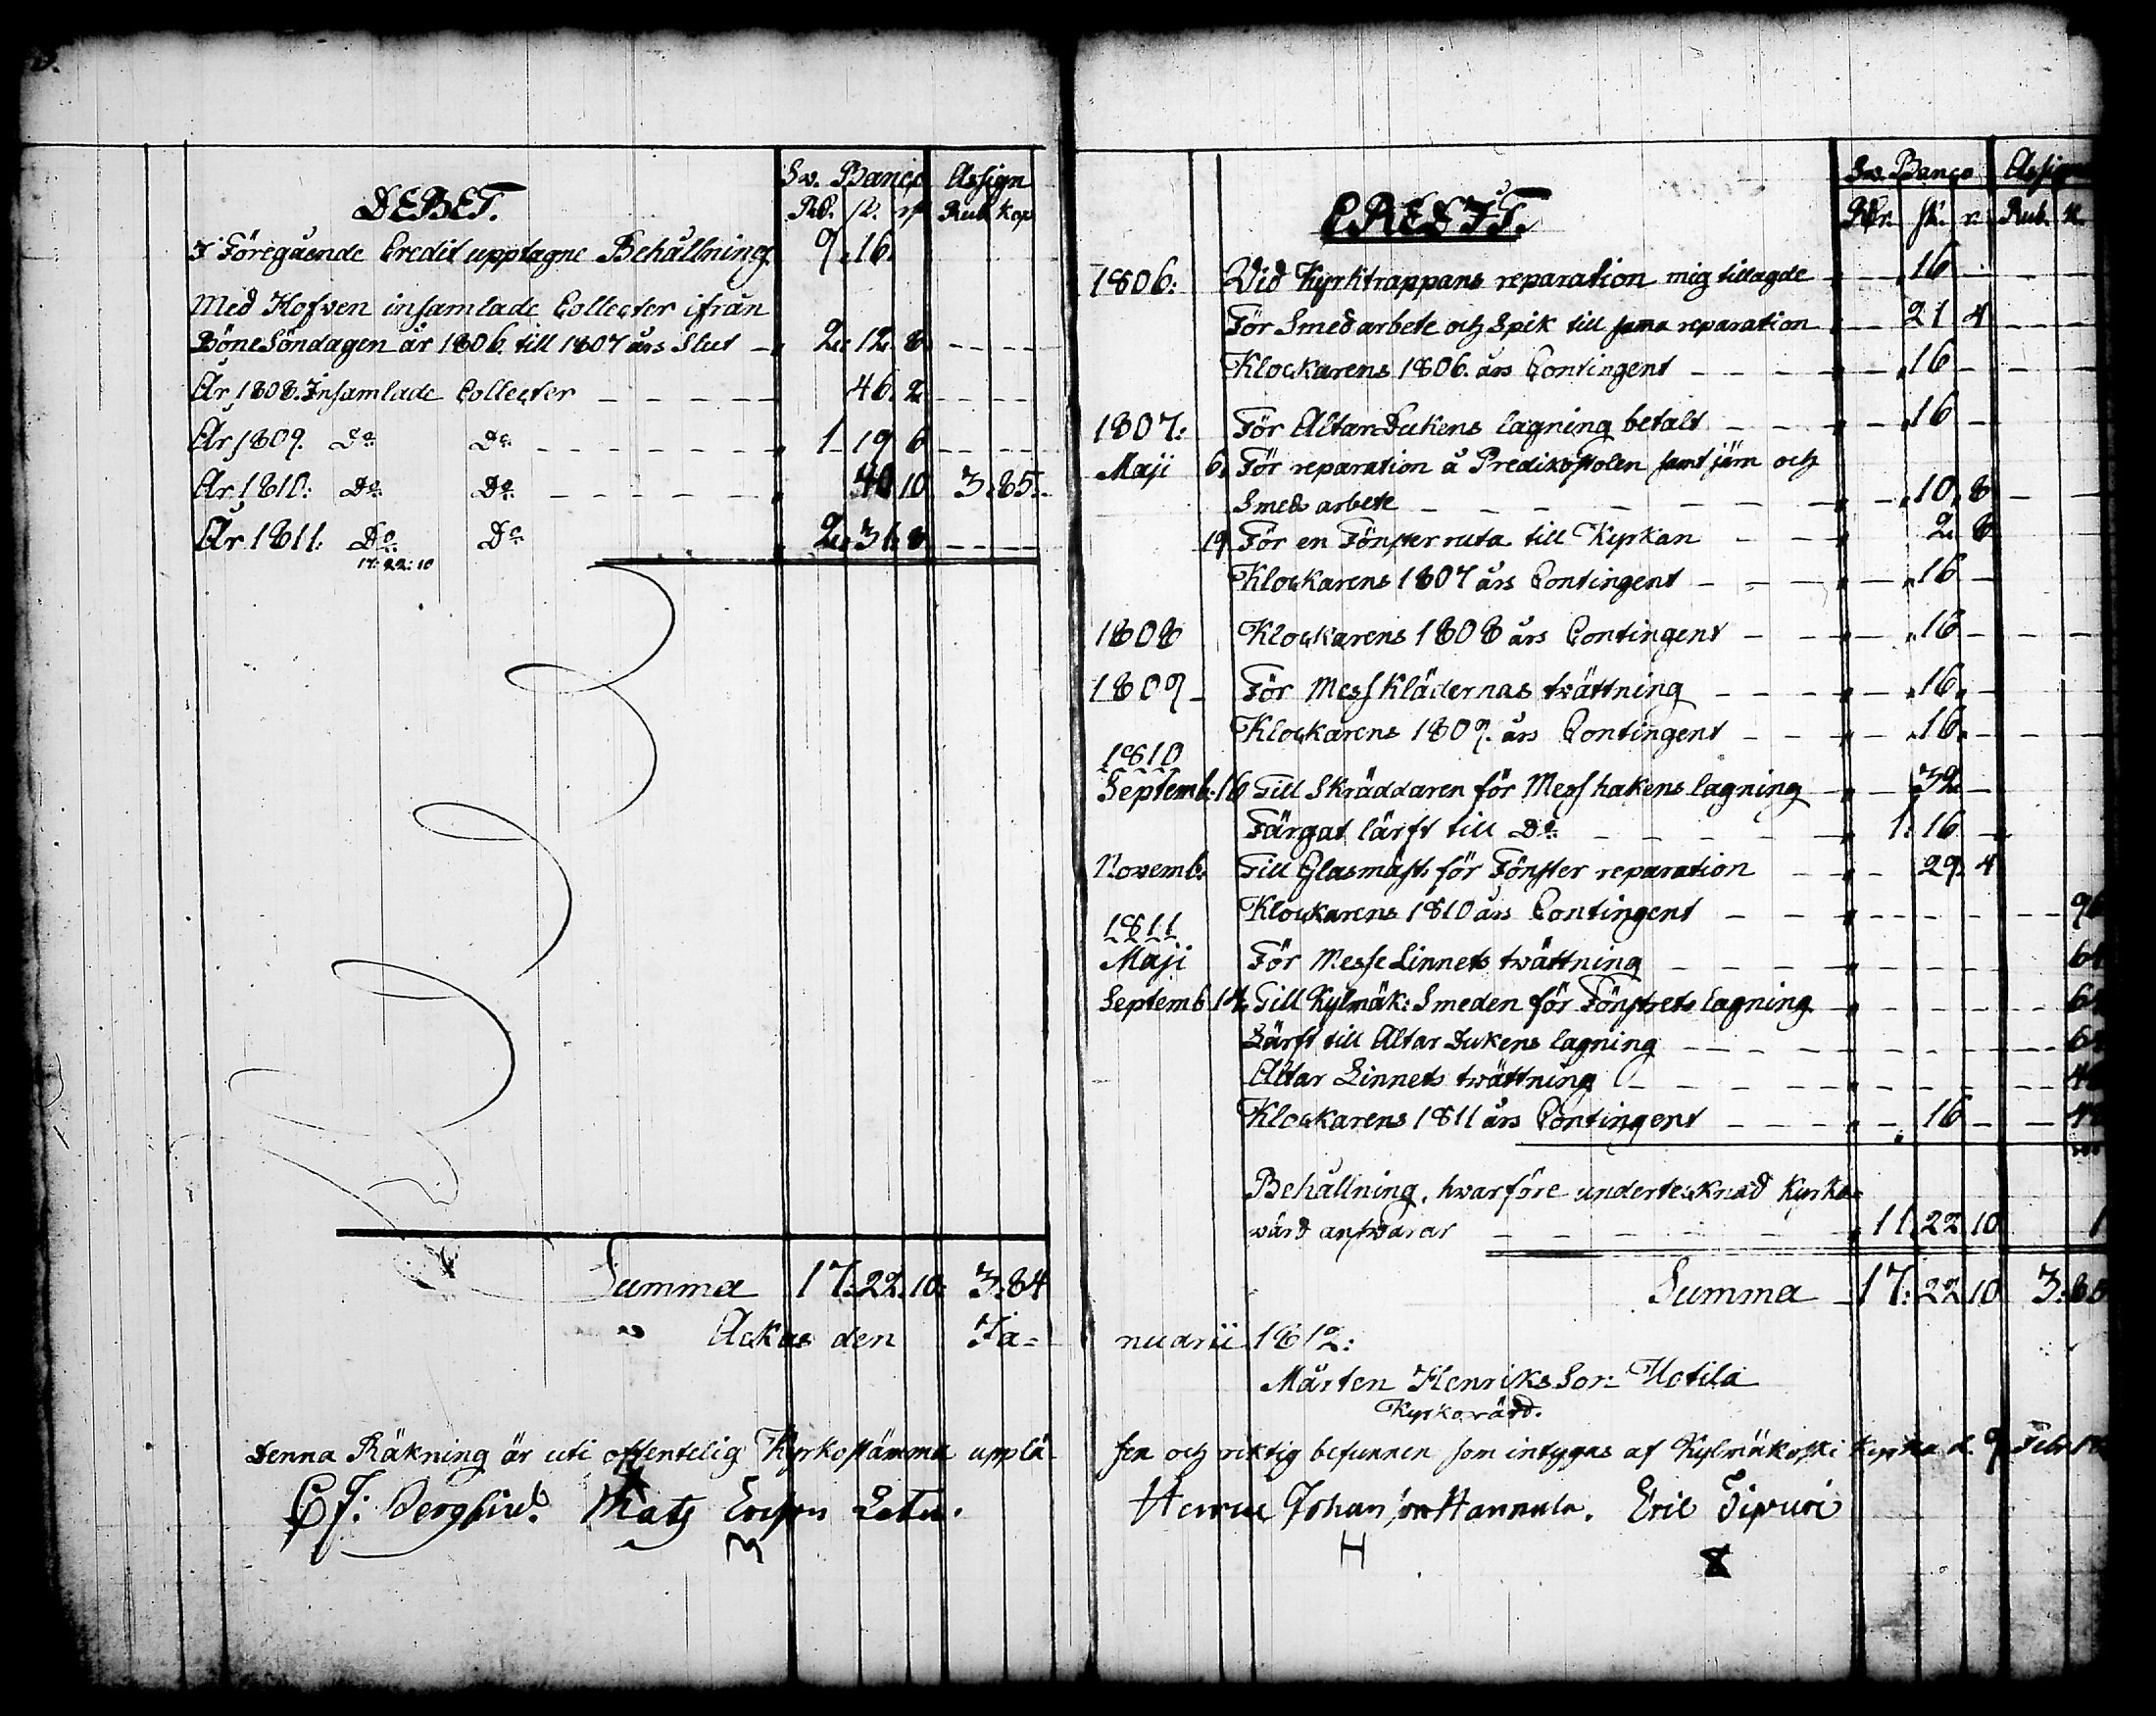 DEBET.
Sw. Banco Assign
Rd. sk. rf Rub. kop
I Föregående Credit upptagne Behållning 9. 16.
Med Hofven insamlade Collecter ifrån
BöneSöndagen år 1806. till 1807 års Slut 2. 12. 8.
År 1808. Insamlade Collecter 46. 2
År 1809. Do Do 1 19 6
År 1810: Do Do 40 10 3. 85.
År 1811: Do Do 2. 31. 8
17: 22: 10
Summa 17: 22. 10: 3: 84
Ackas den Ja=
Denna Räkning är uti offentelig Kyrkostämma upplä-
CJ: Matz Ersson
CREDIT.
Sw. Banco Assign
Rdr. sk. r. Rub. K.
1806: Vid Kyrktrappans reparation mig tillagde 16
För Smed arbete och Spik till sama reparation 21 4
Klockarens 1806. års Contingent 16
1807: För Altar-Dukens lagning betalt 16
Maji 6. För reparation å Predikostolen samt järn och
Smeds arbete 10. 8
19 För en Fönster ruta till Kyrkan 2. 8
Klockarens 1807 års Contingent 16
1808 Klockarens 1808 års Contingent 16
1809 För Mess Klädernas twättning 16
Klockarens 1809. års Contingent 16
1810
Septemb. 16 Till Skräddaren för Mess hakens lagning 32
Färgat lärft till Do 1. 16
Novemb. Till Glasmäst. för Fönster reparation 29. 4
Klockarens 1810 års Contingent
1811
Maji För Messe Linnets twättning
Septemb 14. Till Kylmäk: Smeden för Fönstrets lagning
Lärft till Altar Dukens lagning
Altar Linnets twättning
Klockarens 1811 års Contingent 16
Behållning, hwarföre undertecknad Kyrko=
wärd answarar 11. 22 10 1
Summa 17: 22 10 3: 85
nuarii 1812:
Mårten Henriks Son Uotila
Kyrkovärd.
sen och riktig befunnen som intygas af Kylmäkoski Kyrka d. 9 Febr. 18
Johan son Hannula. Eric
H